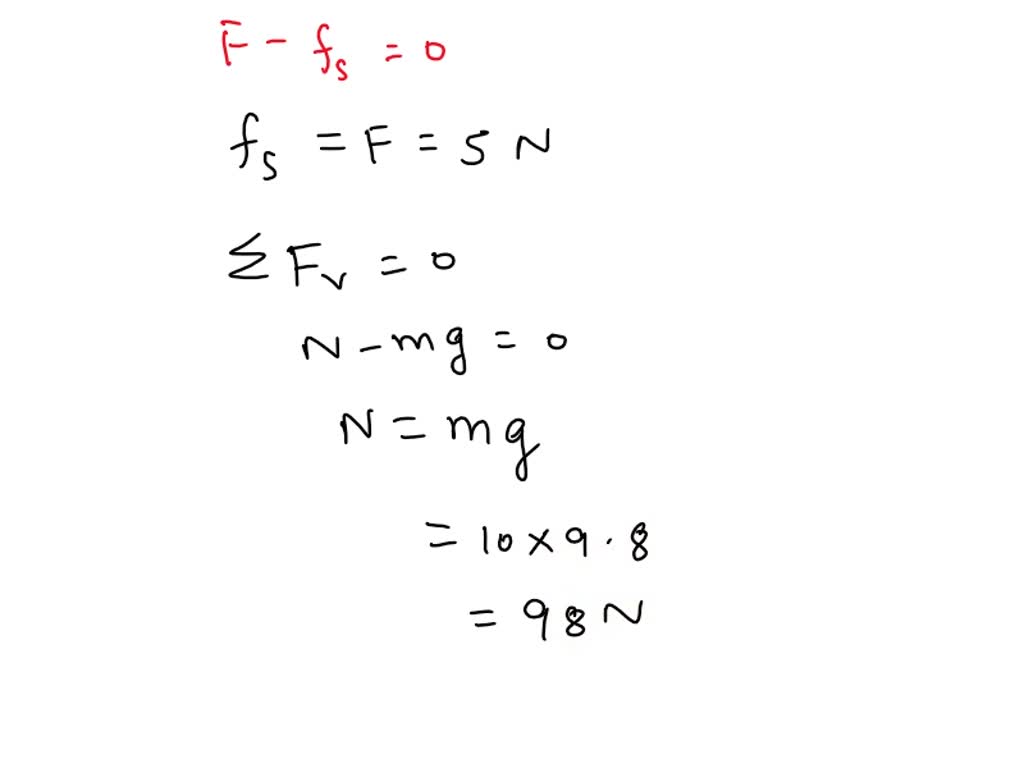 F - fs = 0
fs = F = 5 N
Σ Fv = 0
N - mg = 0
N = mg
= 10 × 9.8
= 98 N